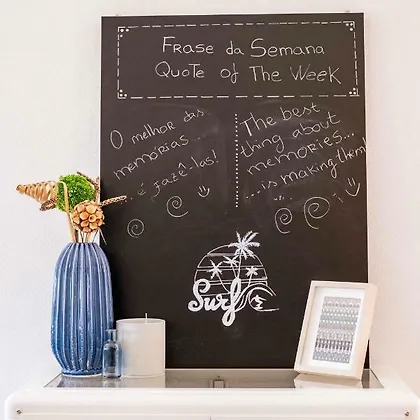 Frase da Semana
Quote of The Week
O melhor das
memorias...
...é fazê-las!
The best
thing about
memories...
...is making them!
Surf